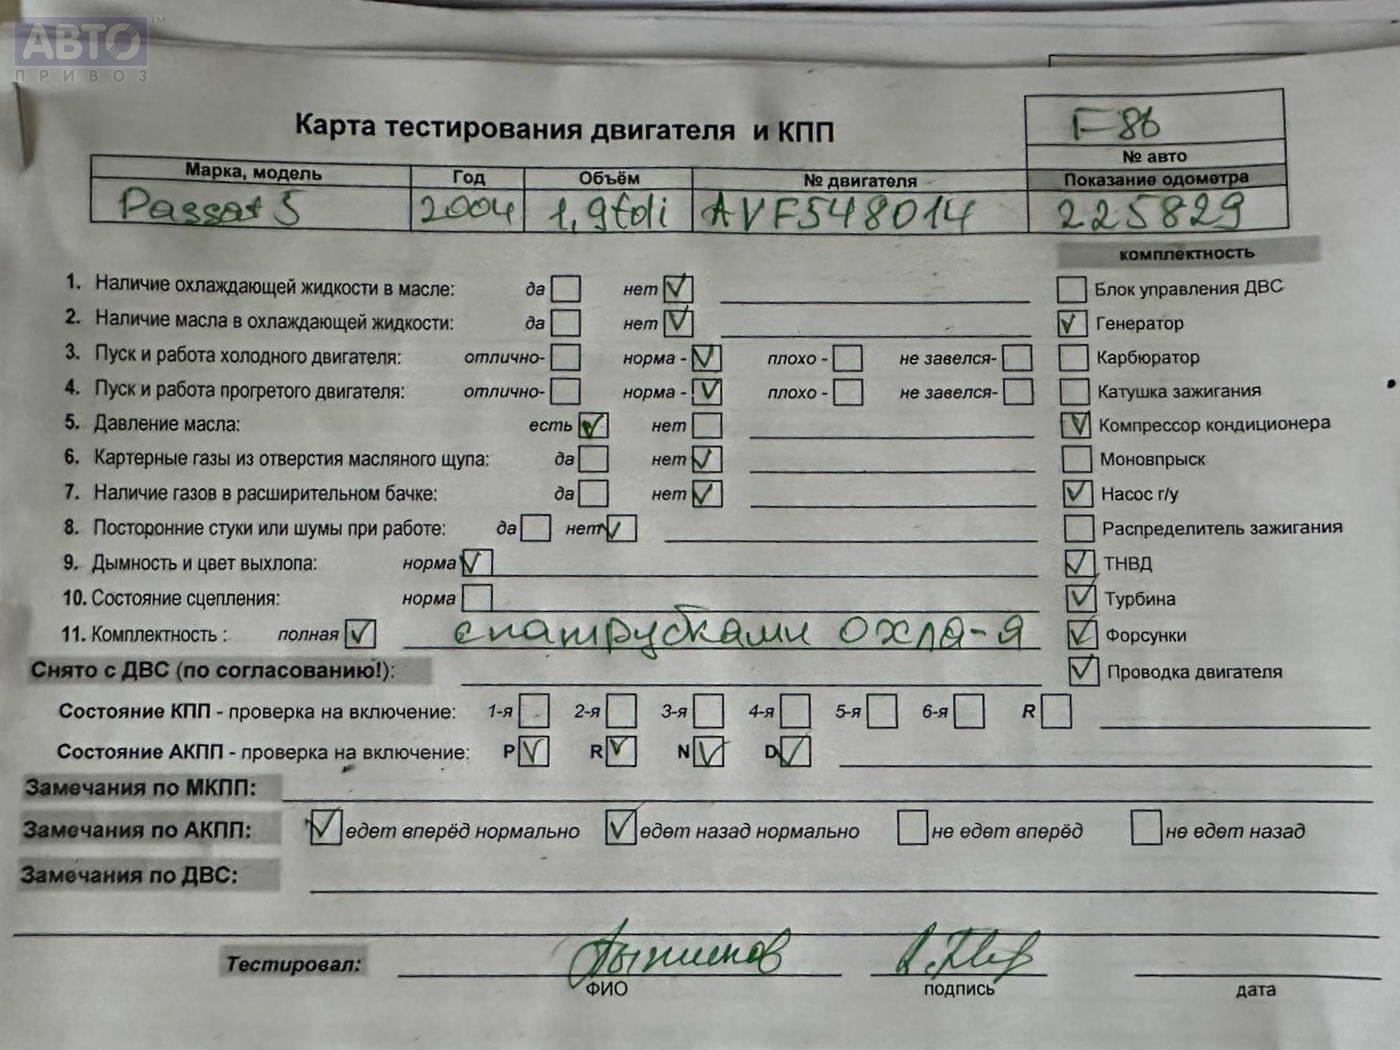 АВТО™
ПРИВОЗ
Карта тестирования двигателя и КПП
F-86
№ авто
Марка, модель Год Объём № двигателя Показание одометра
Passat 5 2004 1,9tdi AVF548014 225829
комплектность
1. Наличие охлаждающей жидкости в масле: да нет Блок управления ДВС
2. Наличие масла в охлаждающей жидкости: да нет Генератор
3. Пуск и работа холодного двигателя: отлично- норма - плохо - не завелся- Карбюратор
4. Пуск и работа прогретого двигателя: отлично- норма - плохо - не завелся- Катушка зажигания
5. Давление масла: есть нет Компрессор кондиционера
6. Картерные газы из отверстия масляного щупа: да нет Моновпрыск
7. Наличие газов в расширительном бачке: да нет Насос г/у
8. Посторонние стуки или шумы при работе: да нет Распределитель зажигания
9. Дымность и цвет выхлопа: норма ТНВД
10. Состояние сцепления: норма Турбина
11. Комплектность : полная с патрубками охла-я Форсунки
Снято с ДВС (по согласованию!): Проводка двигателя
Состояние КПП - проверка на включение: 1-я 2-я 3-я 4-я 5-я 6-я R
Состояние АКПП - проверка на включение: P R N D
Замечания по МКПП:
Замечания по АКПП: едет вперёд нормально едет назад нормально не едет вперёд не едет назад
Замечания по ДВС:
Тестировал:
ФИО подпись дата